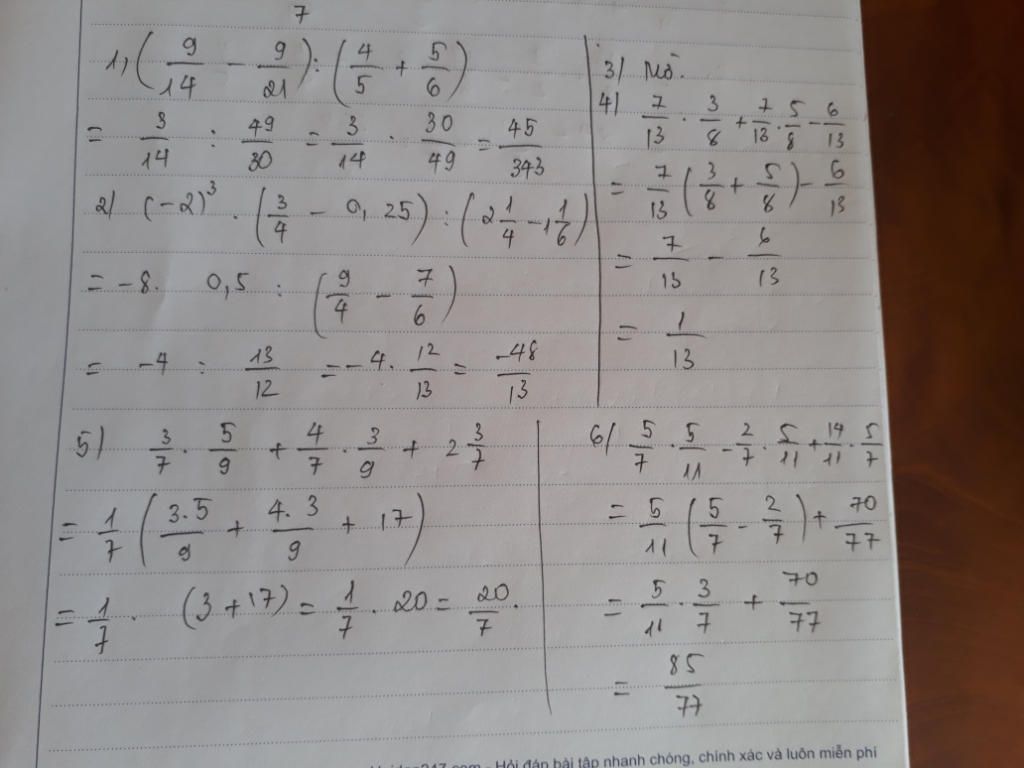 7
1, (9/14 - 9/21) : (4/5 + 5/6)
= 3/14 : 49/30 = 3/14 . 30/49 = 45/343
2) (-2)³ . (3/4 - 0,25) : (2 1/4 - 1 1/6)
= -8 . 0,5 : (9/4 - 7/6)
= -4 : 13/12 = -4 . 12/13 = -48/13
3) Mờ.
4) 7/13 . 3/8 + 7/13 . 5/8 - 6/13
= 7/13 (3/8 + 5/8) - 6/13
= 7/13 - 6/13
= 1/13
5) 3/7 . 5/9 + 4/7 . 3/9 + 2 3/7
= 1/7 (3.5/9 + 4.3/9 + 17)
= 1/7 . (3 + 17) = 1/7 . 20 = 20/7 .
6) 5/7 . 5/11 - 2/7 . 5/11 + 14/11 . 5/7
= 5/11 (5/7 - 2/7) + 70/77
= 5/11 . 3/7 + 70/77
= 85/77
- Hỏi đáp bài tập nhanh chóng, chính xác và luôn miễn phí